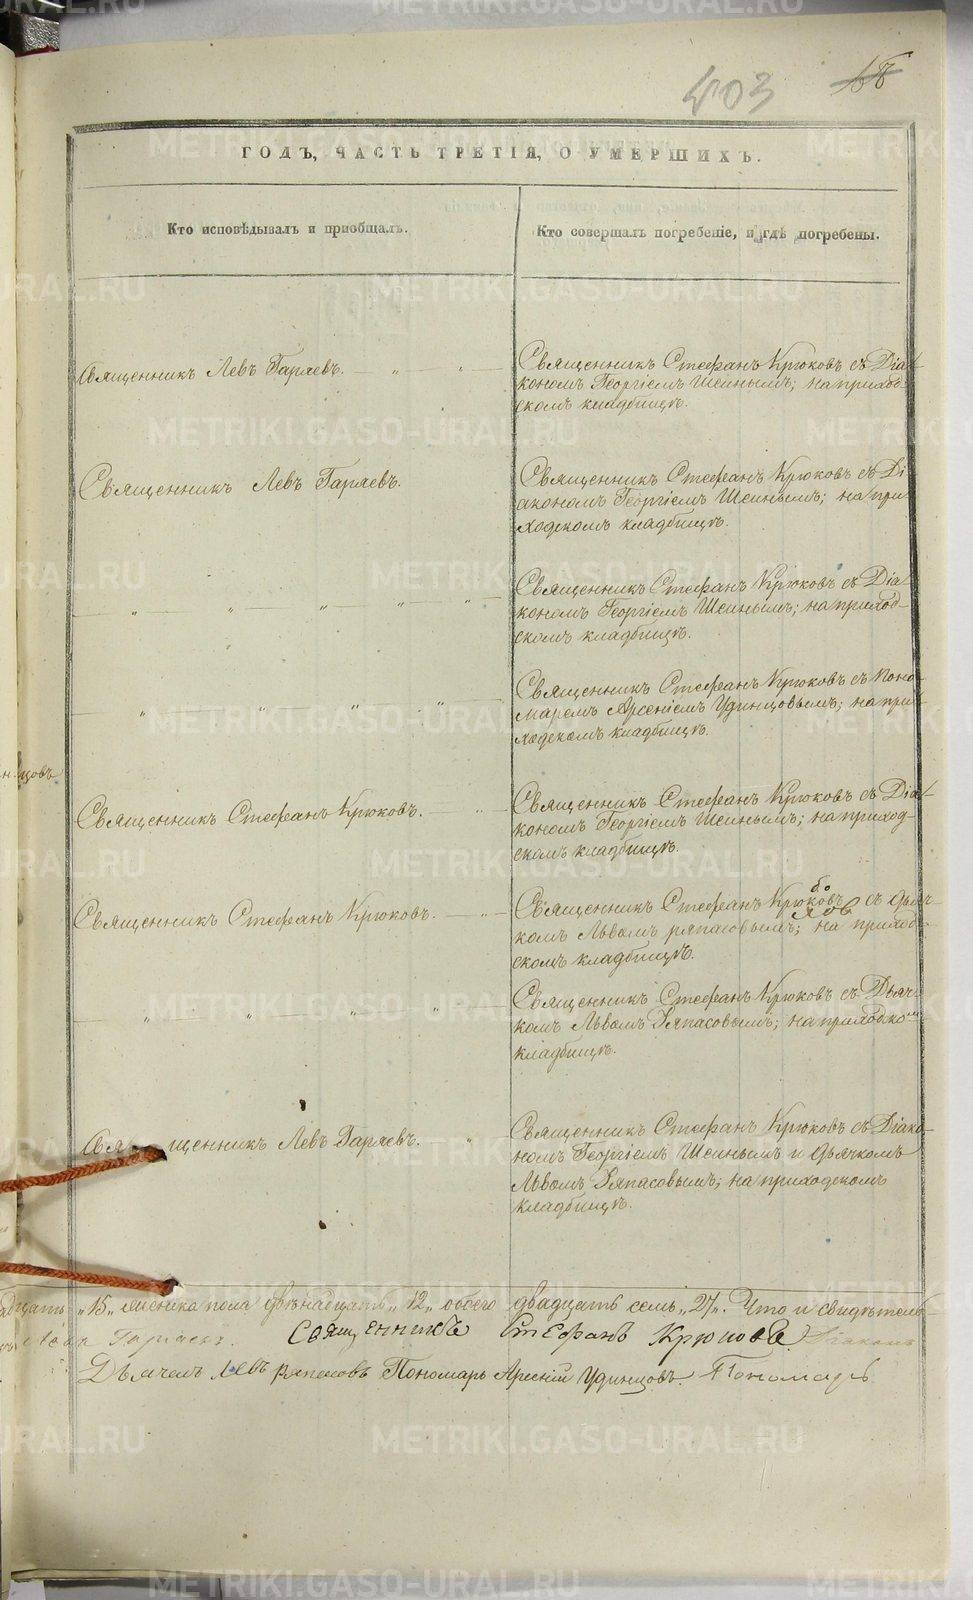 403
ГОДЪ, ЧАСТЬ ТРЕТІЯ, О УМЕРШИХЪ.
Кто исповѣдывалъ и приобщалъ.
Кто совершалъ погребеніе, и гдѣ погребены.
Священникъ Левъ Гаряевъ.
Священникъ Стефанъ Крюковъ съ Діа-
кономъ Георгіемъ Шеинымъ; на приход-
скомъ кладбищѣ.
Священникъ Левъ Гаряевъ.
Священникъ Стефанъ Крюковъ съ Ді
акономъ Георгіемъ Шеинымъ; на при
ходскомъ кладбищѣ.
Священникъ Стефанъ Крюковъ съ Діа
кономъ Георгіемъ Шеинымъ; на приход-
скомъ кладбищѣ.
Священникъ Стефанъ Крюковъ съ Поно-
маремъ Арсеніемъ Удинцовымъ; на при-
ходскомъ кладбищѣ.
Священникъ Стефанъ Крюковъ.
Священникъ Стефанъ Крюковъ съ Діа-
кономъ Георгіемъ Шеинымъ; на приход-
скомъ кладбищѣ.
Священникъ Стефанъ Крюковъ.
Священникъ Стефанъ Крюковъ съ Дьяч-
комъ Львомъ Ряпасовымъ; на приход-
скомъ кладбищѣ.
Священникъ Стефанъ Крюковъ съ Дьяч-
комъ Львомъ Ряпасовымъ; на приходском
кладбищѣ.
Священникъ Левъ Гаряевъ.
Священникъ Стефанъ Крюковъ съ Діако-
номъ Георгіемъ Шеинымъ и Дьячкомъ
Львомъ Ряпасовымъ; на приходскомъ
кладбищѣ.
„15„ женска пола двѣнадцать „12„ обоего двадцать семь „27„. Что и свидѣтель-
Левъ Гаряевъ. Священникъ Стефанъ Крюковъ. Діаконъ
Дьячекъ Левъ Ряпасовъ Пономарь Арсеній Удинцовъ. Пономарь
METRIKI.GASO-URAL.RU